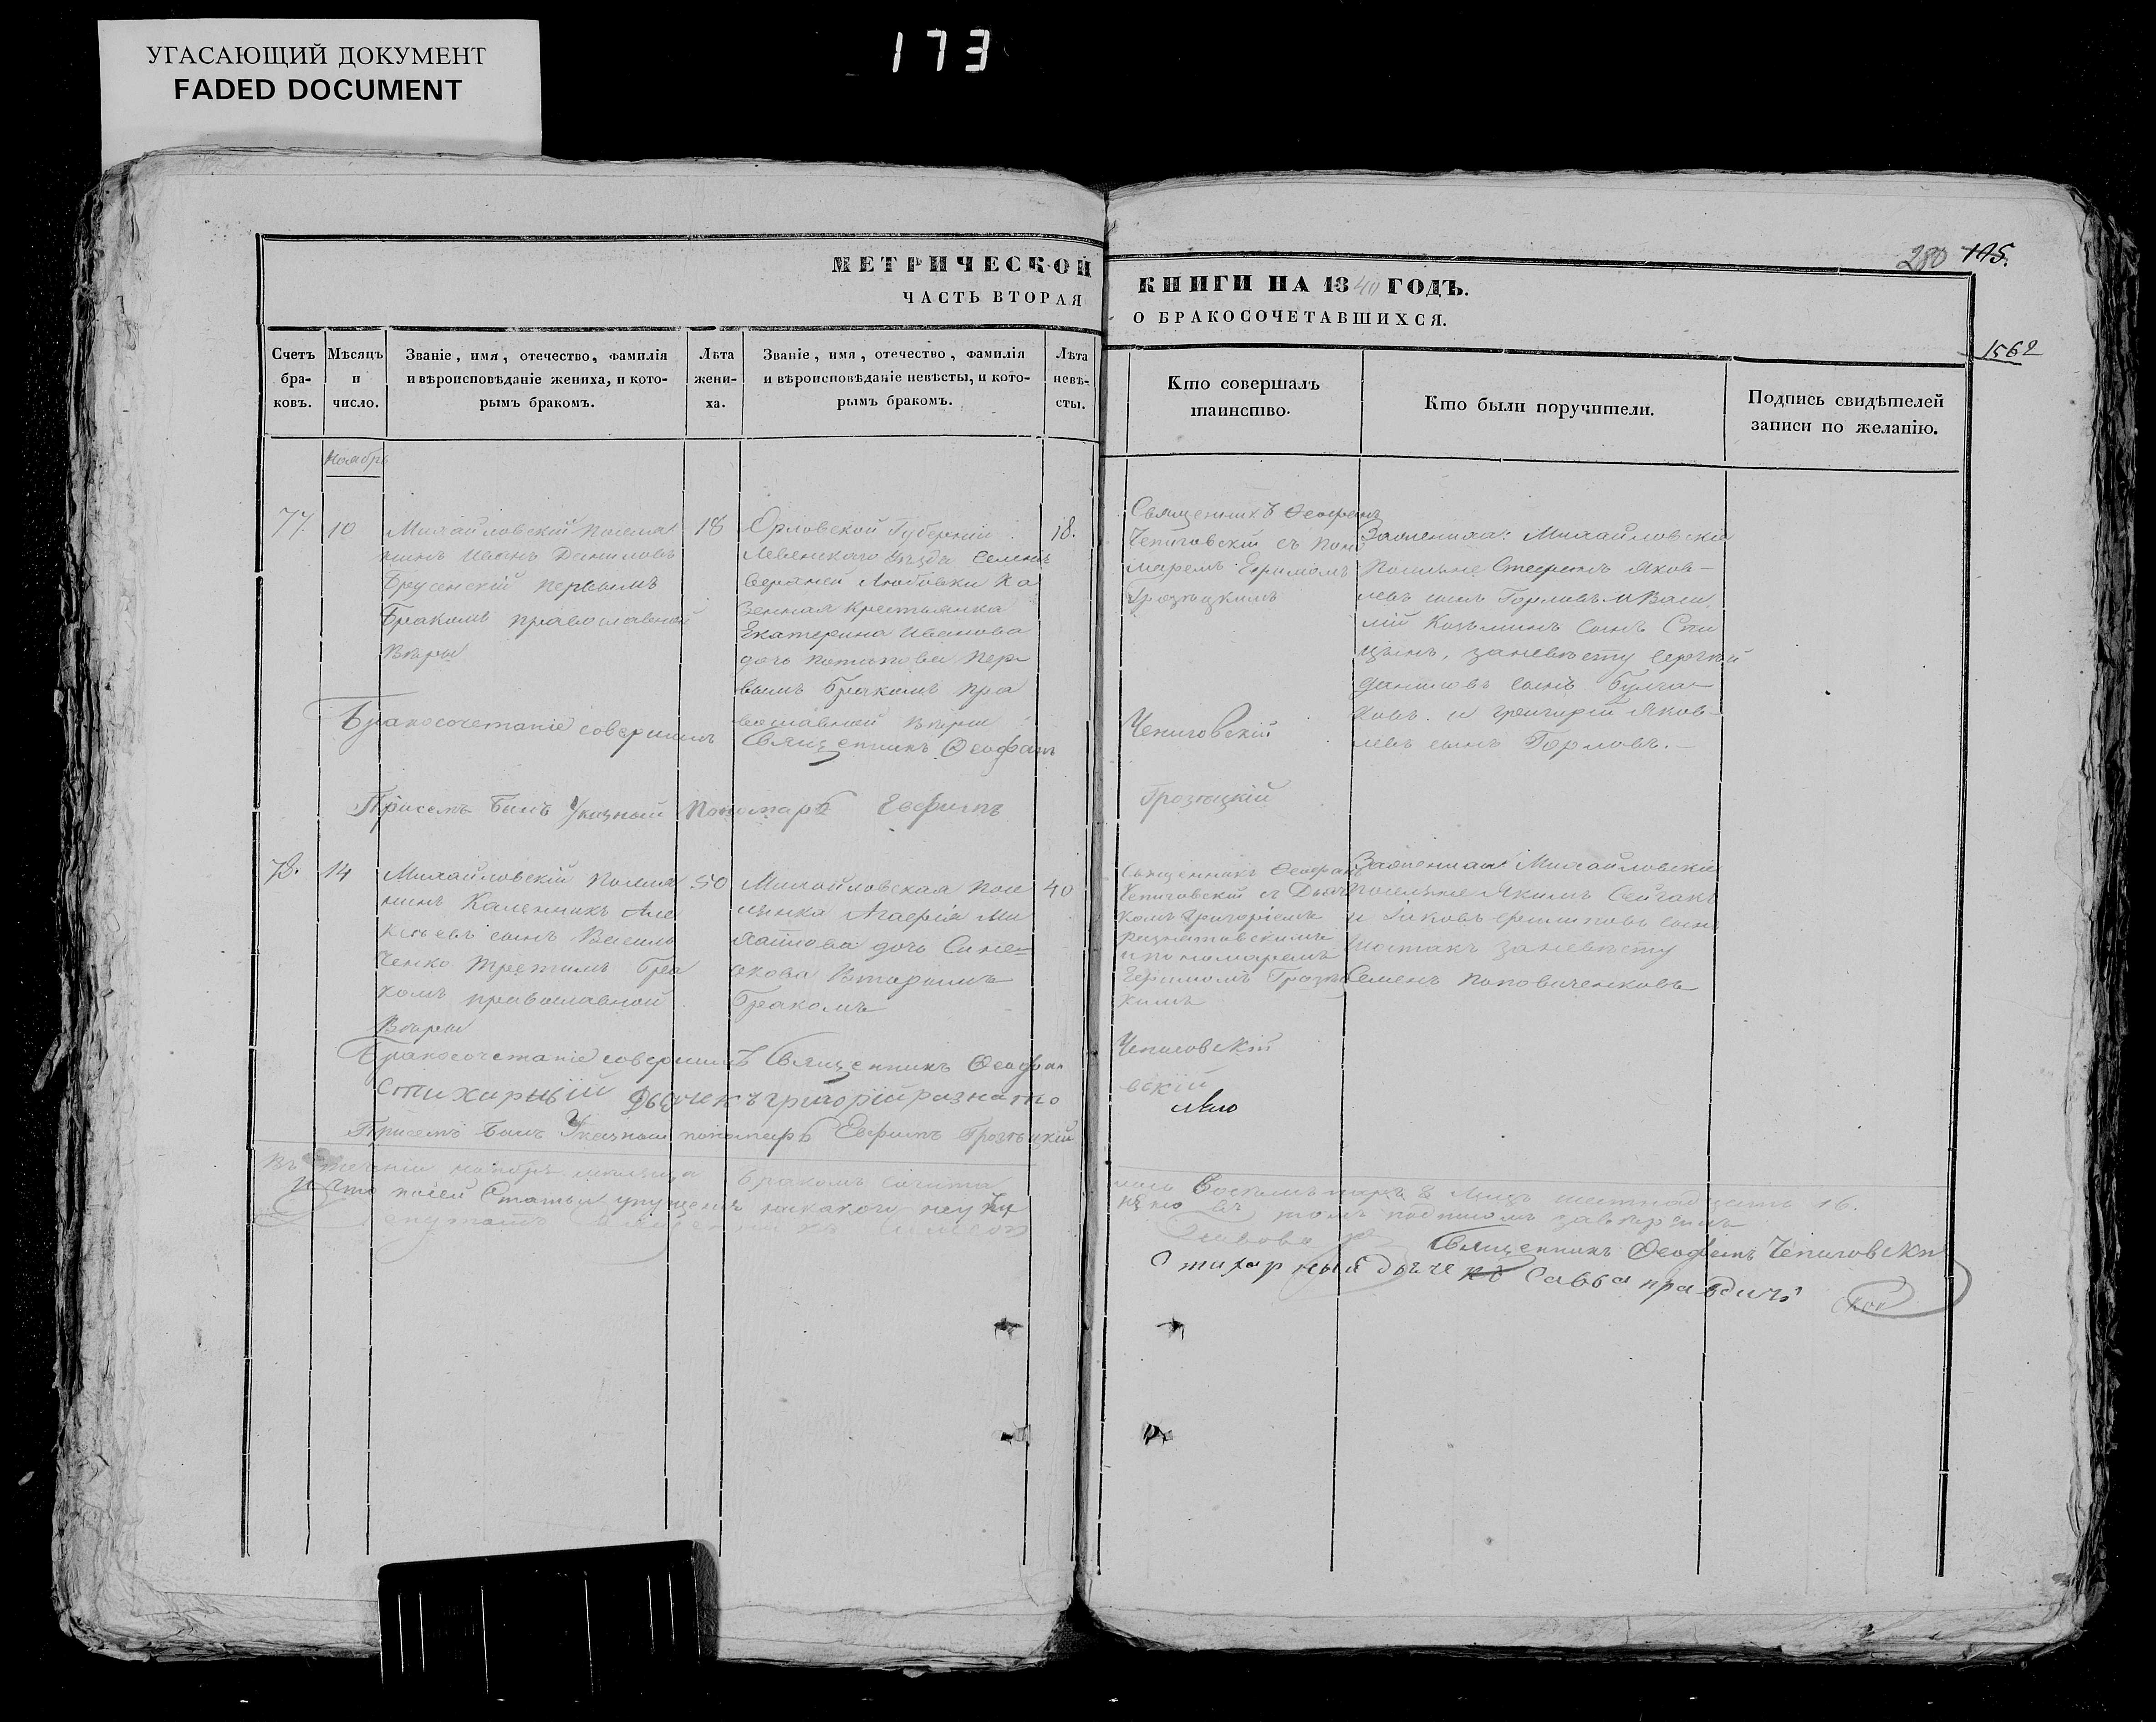 УГАСАЮЩИЙ ДОКУМЕНТ
FADED DOCUMENT
173
280 195.
1562
МЕТРИЧЕСКОЙ
ЧАСТЬ ВТОРАЯ
КНИГИ НА 1840 ГОДЪ.
О БРАКОСОЧЕТАВШИХСЯ.
Счетъ
бра-
ковъ.
Мѣсяцъ
и
число.
Званіе, имя, отечество, фамилія
и вѣроисповѣданіе жениха, и кото-
рымъ бракомъ.
Лѣта
жени-
ха.
Званіе, имя, отечество, фамилія
и вѣроисповѣданіе невѣсты, и кото-
рымъ бракомъ.
Лѣта
невѣ-
сты.
Кто совершалъ
таинство.
Кто были поручители.
Подпись свидѣтелей
записи по желанію.
Ноябрь
77.
10
Михайловскій поселя
нинъ Иванъ Даниловъ
первымъ
бракомъ православной
вѣры
18
Орловской Губерніи
уѣзда
Ка
зенная крестьянка
Екатерина Иванова
дочь Потапова пер
вымъ бракомъ пра
вославной вѣры
18.
Священникъ Ѳеофанъ
Чепиговскій съ поно
маремъ Ефимомъ
Грозецкимъ
Михайловскіе
поселяне Яков-
левъ сынъ Горловъ и Васи
лій Козьминъ сынъ Спи
цынъ, заневѣсту Сергѣй
Даниловъ сынъ Булга
ковъ. и Григорій Яков-
левъ сынъ Горловъ.
Бракосочетаніе совершилъ Священникъ Ѳеофанъ Чепиговскій
Присемъ былъ Указный Пономарь Евфимъ Грозецкій
78.
14
Михайловскій поселя
нинъ Калениκъ Але
ксѣевъ сынъ Василь
ченко третимъ бра
комъ православной
вѣры
50
Михайловская посе
лянка Агафія Ми
хайлова дочь
вторымъ
бракомъ
40
Священникъ Ѳеофанъ
Чепиговскій съ Дьяч
комъ Григоріемъ
Разнатовскимъ
и пономаремъ
Ефимомъ Грозец
кимъ
Михайловскіе
поселяне Якимъ
и Іаковъ Филиповъ сынъ
Шостакъ заневѣсту
Семенъ Поповиченковъ
Бракосочетаніе совершилъ Священникъ Ѳеофан Чепиговскій
Стихарный Дьячекъ Григорій Разнато вскій
Присемъ былъ Указный пономарь Евфимъ Грозецкій
Въ теченіи ноября мѣсяца бракомъ сочета
16.
и что посей Статьи упущенія никакого неучи нено въ томъ подписомъ завѣряемъ
Священникъ Ѳеофанъ Чепиговскій
Стихарный дьячекъ Савва